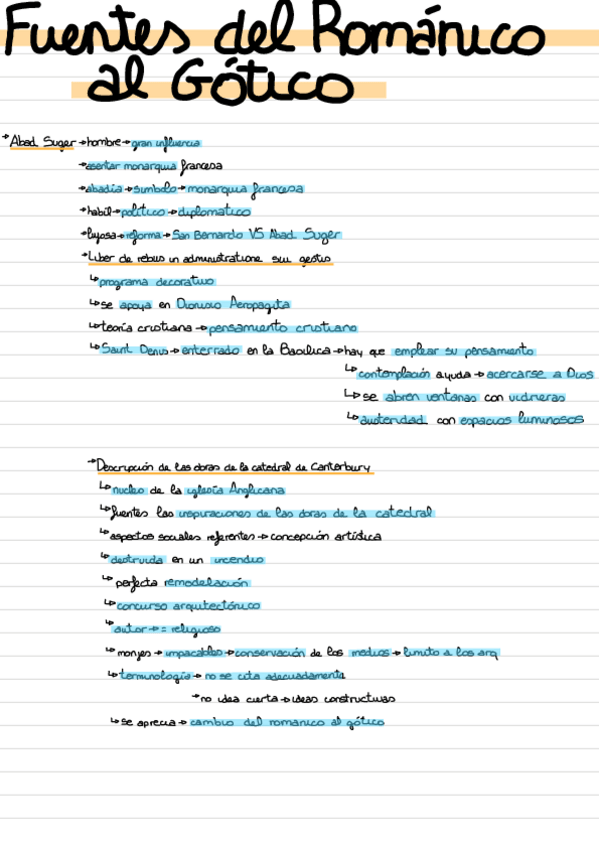 Fuentes del Románico
al Gótico
→Abad Suger→hombre→gran influencia
→asentar monarquia francesa
→abadía→simbolo→monarquia francesa
→habil→político→diplomatico
→lujosa→reforma→San Bernardo VS Abad Suger
→Liber de rebus in administratione sui gestis
↳programa decorativo
↳se apoya en Dionisio Aeropagita
↳teoría cristiana→pensamiento cristiano
↳Saint Denis→enterrado en la Basílica→hay que emplear su pensamiento
↳contemplación ayuda→acercarse a Dios
↳se abren ventanas con vidrieras
↳austeridad con espacios luminosos
→Descripción de las obras de la catedral de Canterbury
↳nucleo de la iglesia Anglicana
↳fuentes las inspiraciones de las obras de la catedral
↳aspectos sociales referentes→concepción artística
↳destruida en un incendio
↳perfecta remodelación
↳concurso arquitectónico
↳autor→=religioso
↳monjes→impacables→conservación de los medios→limito a los arq
↳terminología→no se cita adecuadamenta
→no idea cierta→ideas constructivas
↳se aprecia→cambio del romanico al gótico